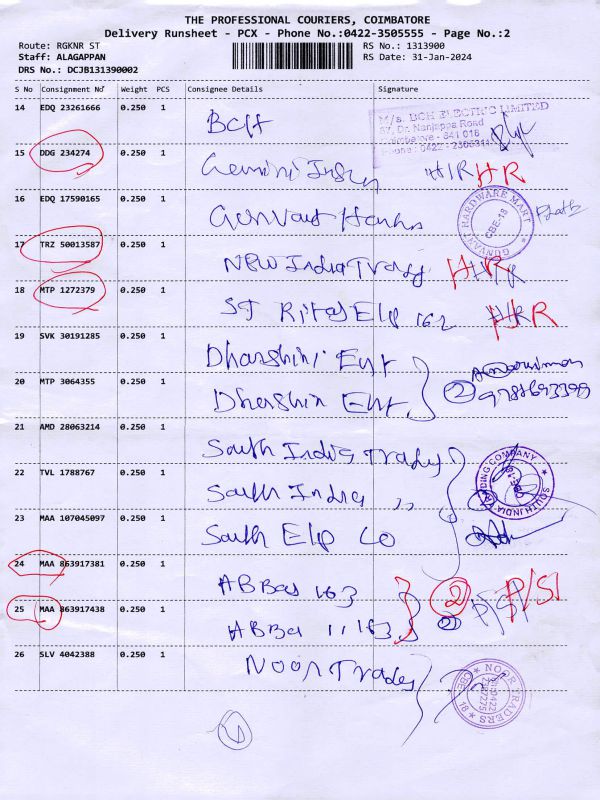 THE PROFESSIONAL COURIERS, COIMBATORE
Delivery Runsheet - PCX - Phone No.:0422-3505555 - Page No.:2
Route: RGKNR ST RS No.: 1313900
Staff: ALAGAPPAN RS Date: 31-Jan-2024
DRS No.: DCJB131390002
S No Consignment No Weight PCS Consignee Details Signature
14 EDQ 23261666 0.250 1 BCH
M/s. BCH ELECTRIC LIMITED
57, Dr. Nanjappa Road
Coimbatore - 641 018
Phone : 0422 - 2305314
15 DDG 234274 0.250 1 Gemini HR HR
16 EDQ 17590165 0.250 1
GUNVANT HARDWARE MART
CBE-18
17 TRZ 50013587 0.250 1 New India Tradg HR
18 MTP 1272379 0.250 1 ST Ritas Elp 162 HR
19 SVK 30191285 0.250 1 Dharshini Ent
20 MTP 3064355 0.250 1 Dharshin Ent 2
21 AMD 28063214 0.250 1 South India Trady
22 TVL 1788767 0.250 1 South India ,,
SOUTH INDIA TRADING COMPANY
23 MAA 107045097 0.250 1 South Elp Co
24 MAA 863917381 0.250 1 ABBas 163 2 P/S
25 MAA 863917438 0.250 1 ABBa 11,163 2 P/S
26 SLV 4042388 0.250 1 Noor Trades
NOOR TRADERS
CBE 18